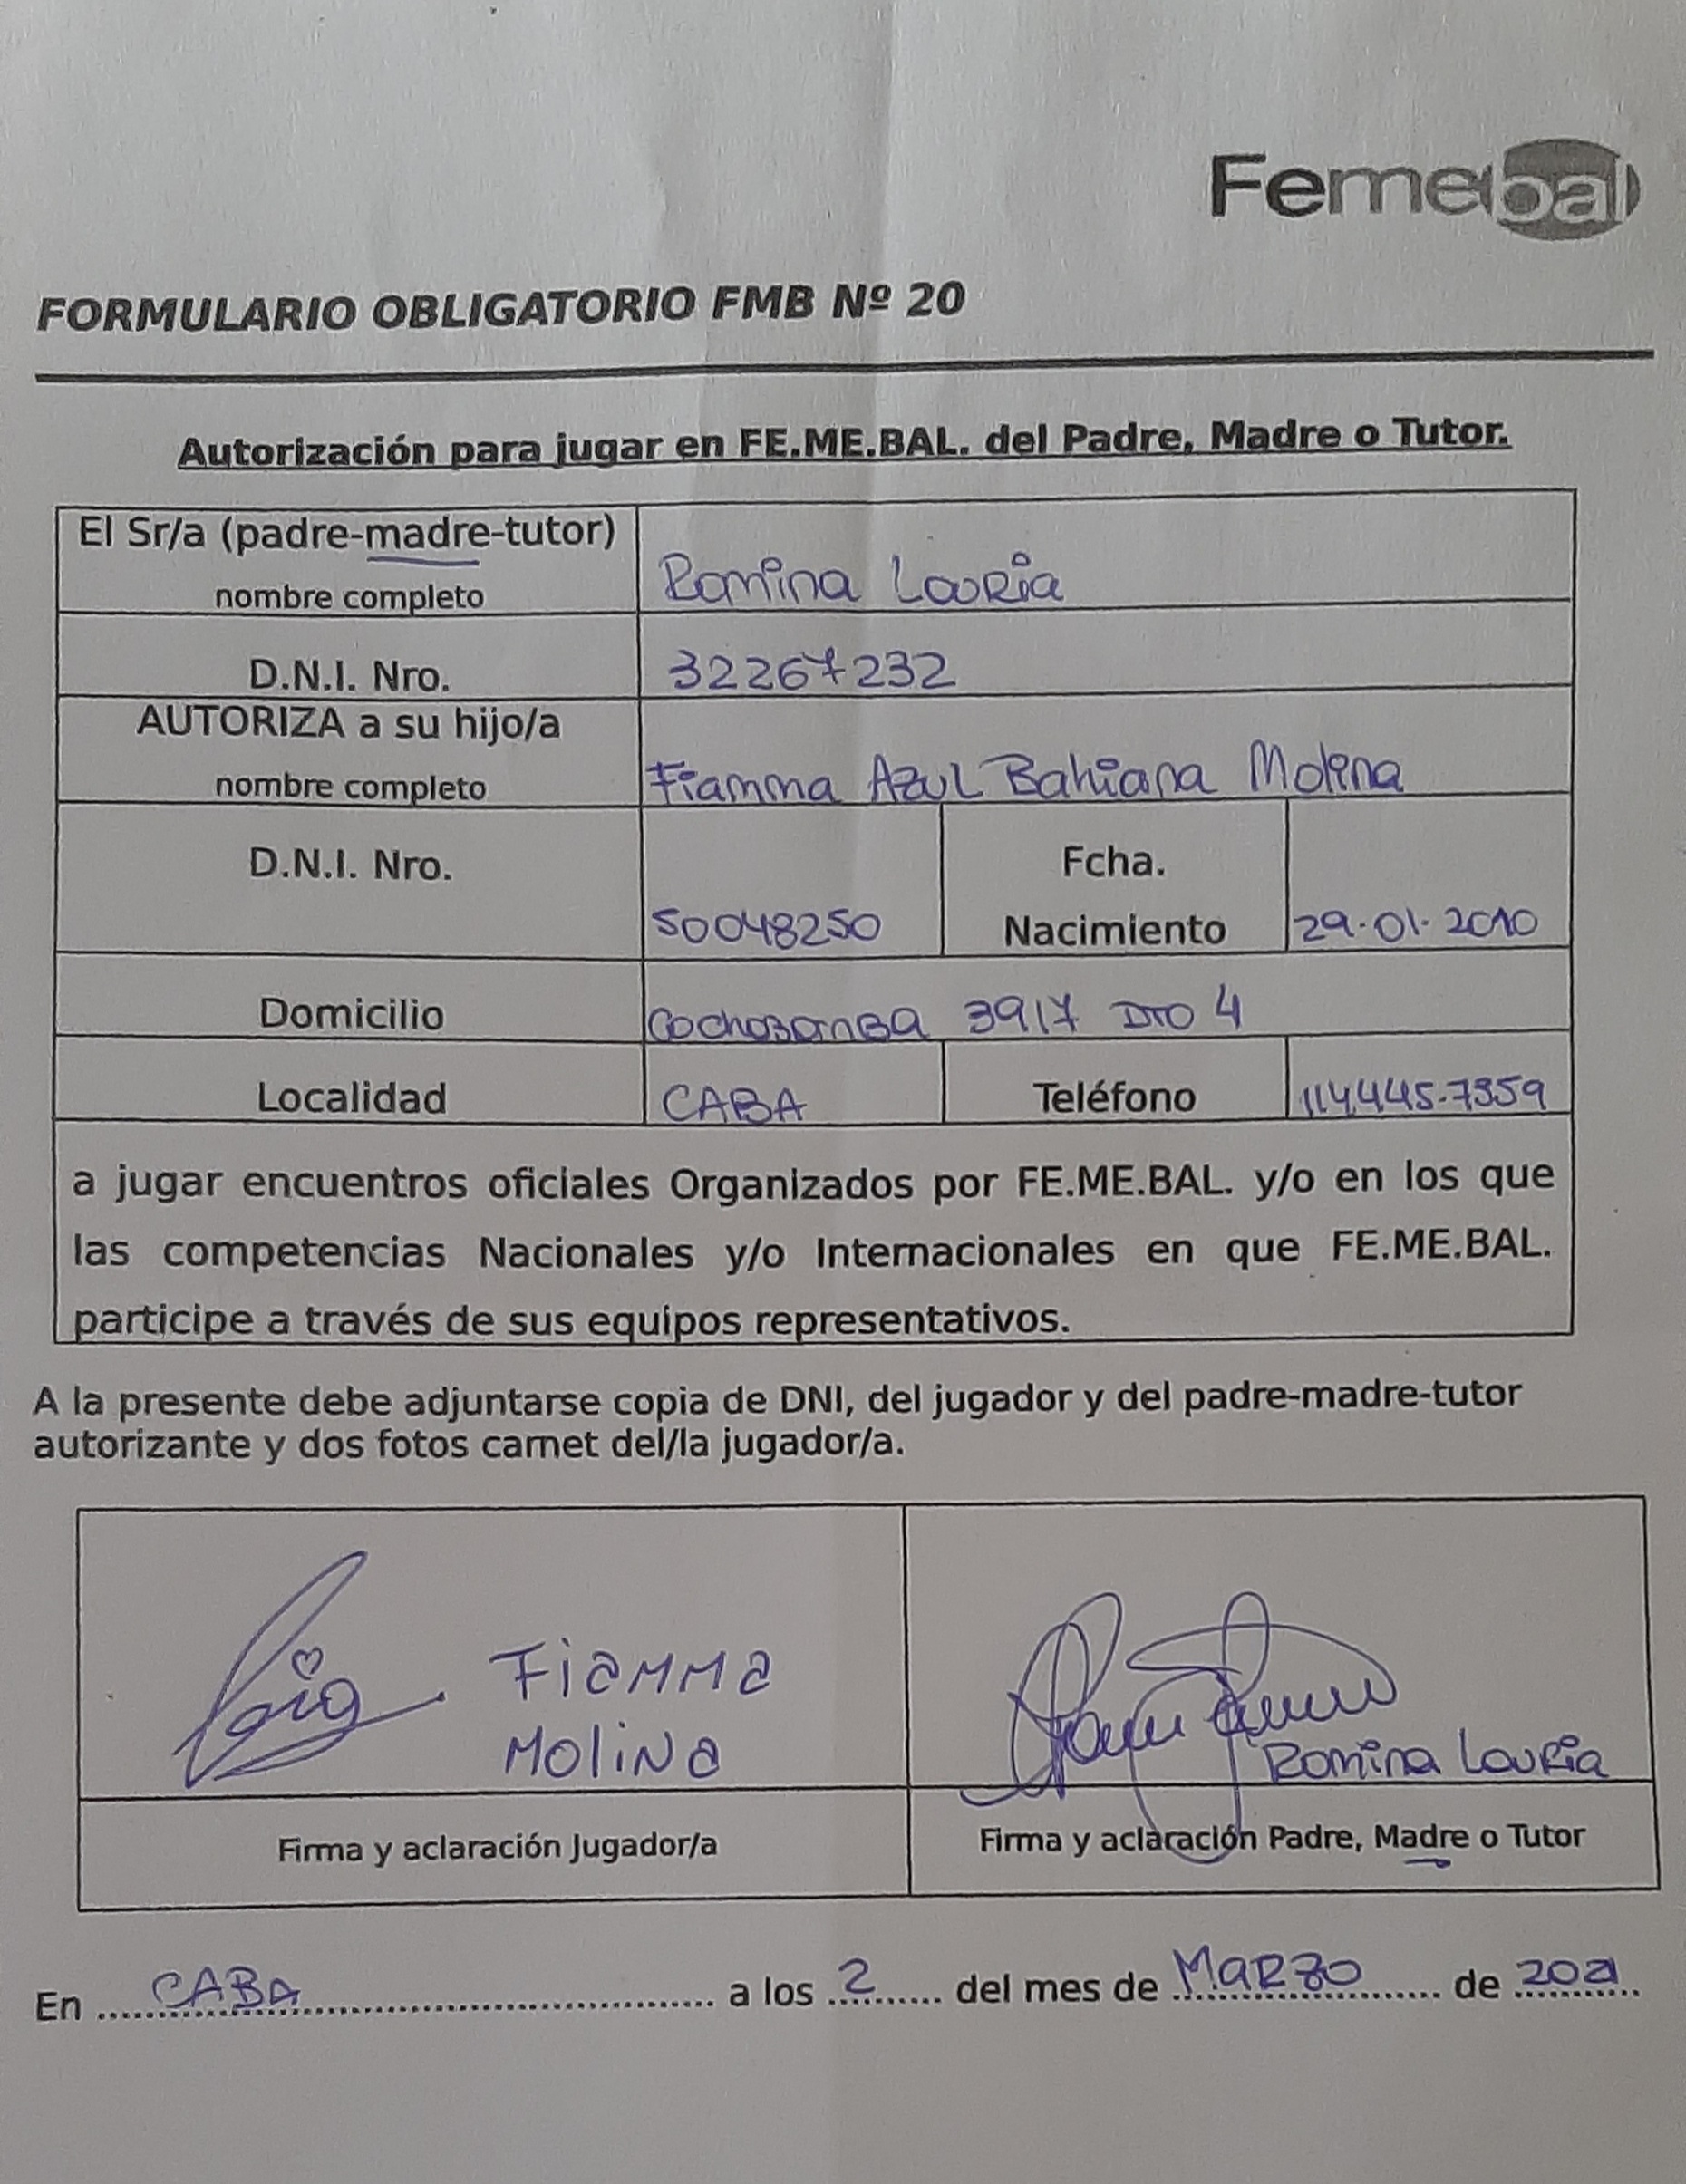 Femebal
FORMULARIO OBLIGATORIO FMB Nº 20
Autorización para jugar en FE.ME.BAL. del Padre, Madre o Tutor.
El Sr/a (padre-madre-tutor)
nombre completo
Romina Louria
D.N.I. Nro.
32267232
AUTORIZA a su hijo/a
nombre completo
Fiamma Azul Bahiana Molina
D.N.I. Nro.
50048250
Fcha.
Nacimiento
29-01-2010
Domicilio
Cochabamba 3917 DTO 4
Localidad
CABA
Teléfono
114445-7359
a jugar encuentros oficiales Organizados por FE.ME.BAL. y/o en los que
las competencias Nacionales y/o Internacionales en que FE.ME.BAL.
participe a través de sus equipos representativos.
A la presente debe adjuntarse copia de DNI, del jugador y del padre-madre-tutor
autorizante y dos fotos carnet del/la jugador/a.
Fiamma
Molina
Romina Louria
Firma y aclaración Jugador/a
Firma y aclaración Padre, Madre o Tutor
En CABA a los 2 del mes de MARZO de 2021